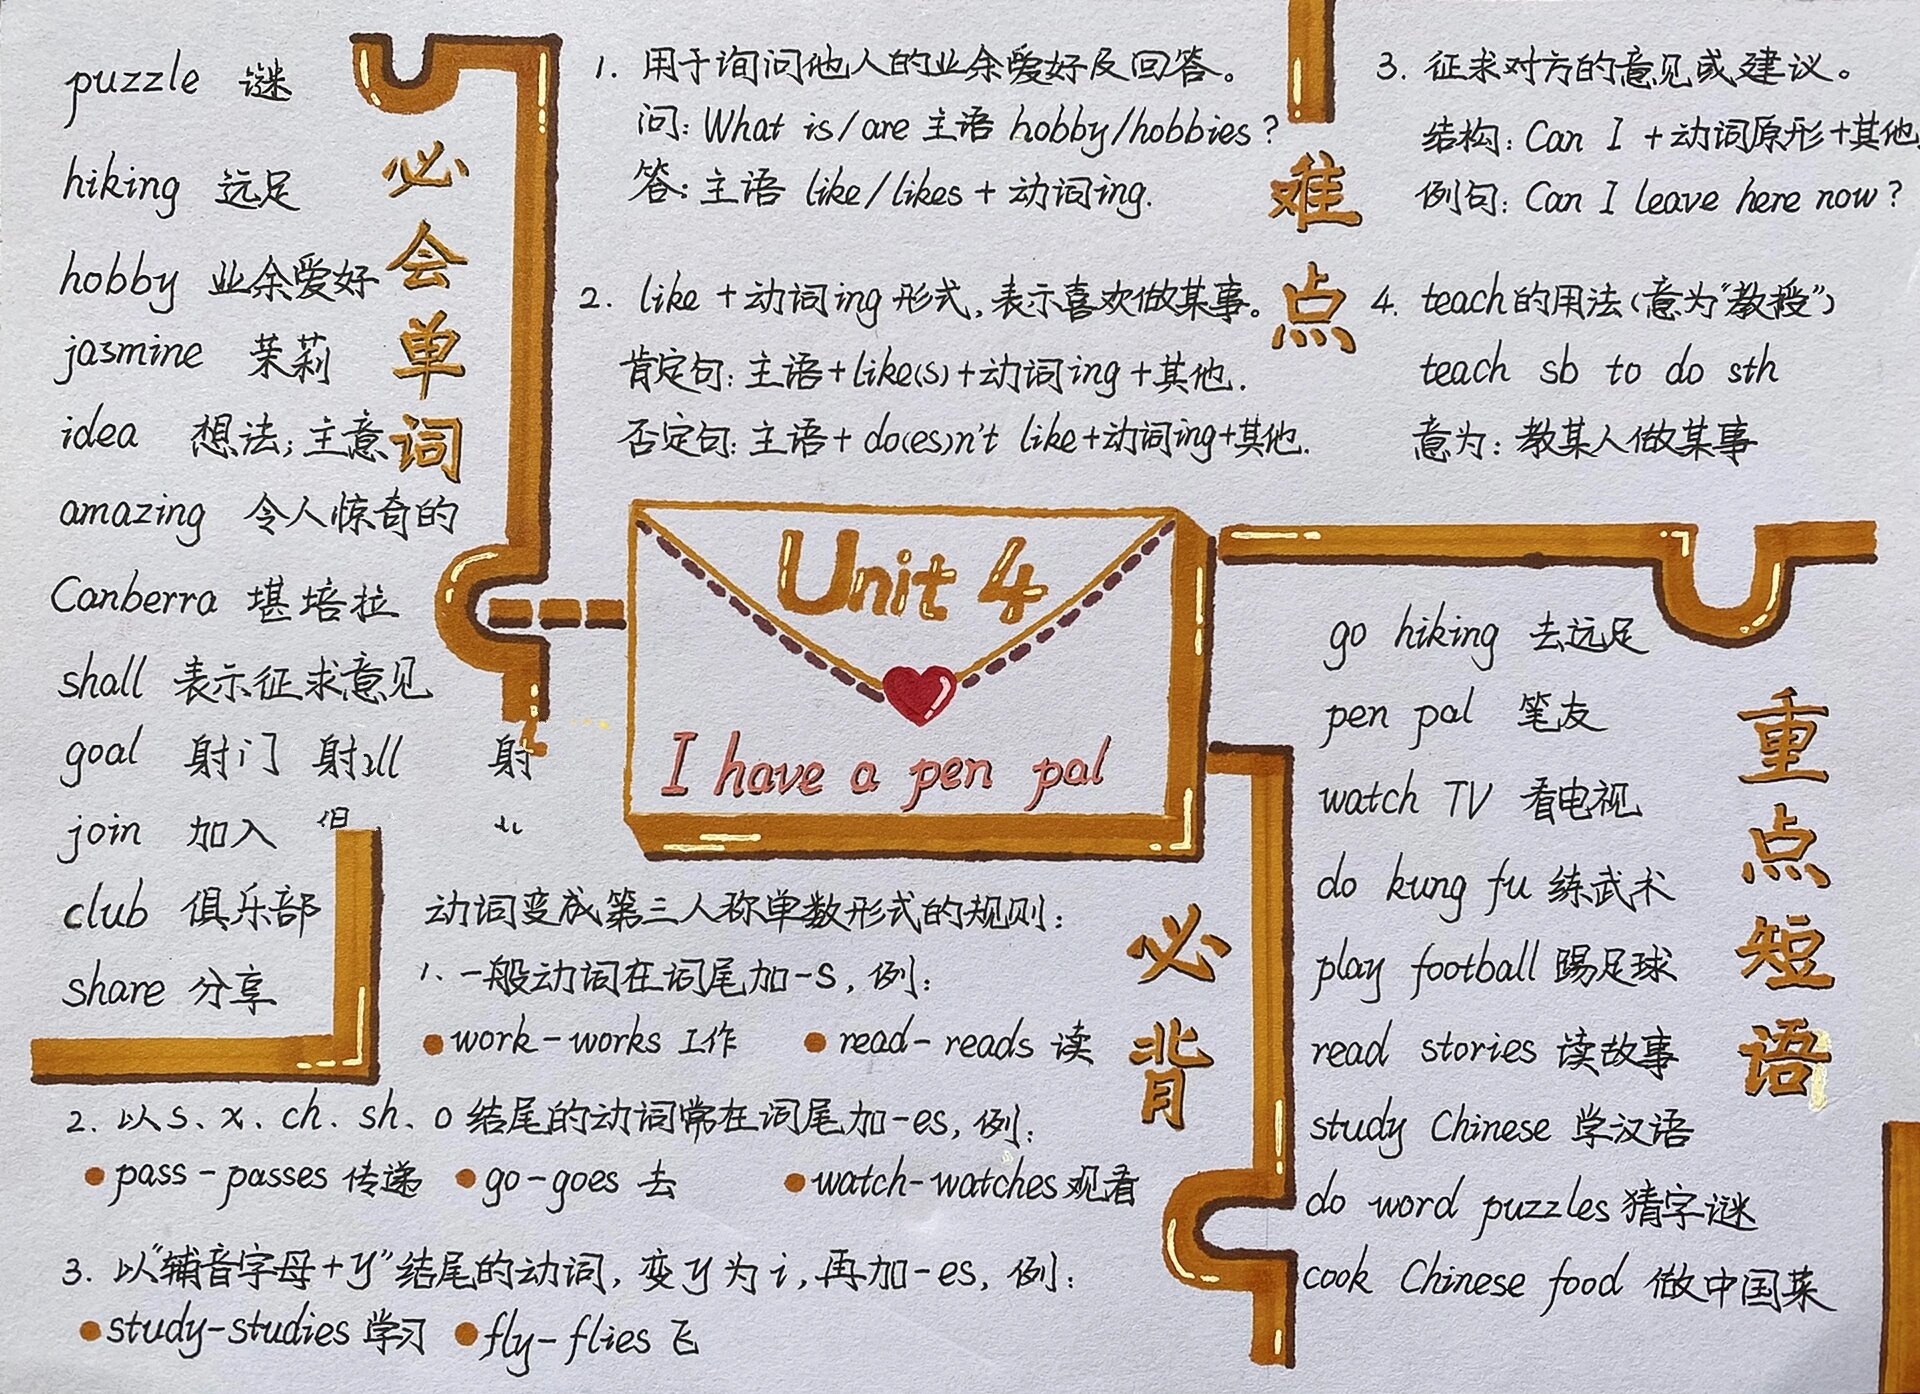 必会单词
puzzle 谜
hiking 远足
hobby 业余爱好
jasmine 茉莉
idea 想法;主意
amazing 令人惊奇的
Canberra 堪培拉
shall 表示征求意见
goal 射门 射 射
join 加入
club 俱乐部
share 分享
难点
1. 用于询问他人的业余爱好及回答。
问: What is/are 主语 hobby/hobbies?
答: 主语 like/likes + 动词ing.
2. like +动词ing 形式,表示喜欢做某事。
肯定句: 主语+like(s)+动词ing +其他.
否定句: 主语+ do(es)n't like+动词ing+其他.
3. 征求对方的意见或建议。
结构: Can I +动词原形+其他
例句: Can I leave here now?
4. teach的用法(意为"教授")
teach sb to do sth
意为: 教某人做某事
Unit 4
I have a pen pal
重点短语
go hiking 去远足
pen pal 笔友
watch TV 看电视
do kung fu 练武术
play football 踢足球
read stories 读故事
study Chinese 学汉语
do word puzzles 猜字谜
cook Chinese food 做中国菜
必背
动词变成第三人称单数形式的规则:
1. 一般动词在词尾加-s, 例:
●work-works 工作 ●read-reads 读
2. 以s、x、ch、sh、o 结尾的动词常在词尾加-es, 例:
●pass-passes 传递 ●go-goes 去 ●watch-watches 观看
3. 以"辅音字母+y"结尾的动词, 变y为i, 再加-es, 例:
●study-studies 学习 ●fly-flies 飞